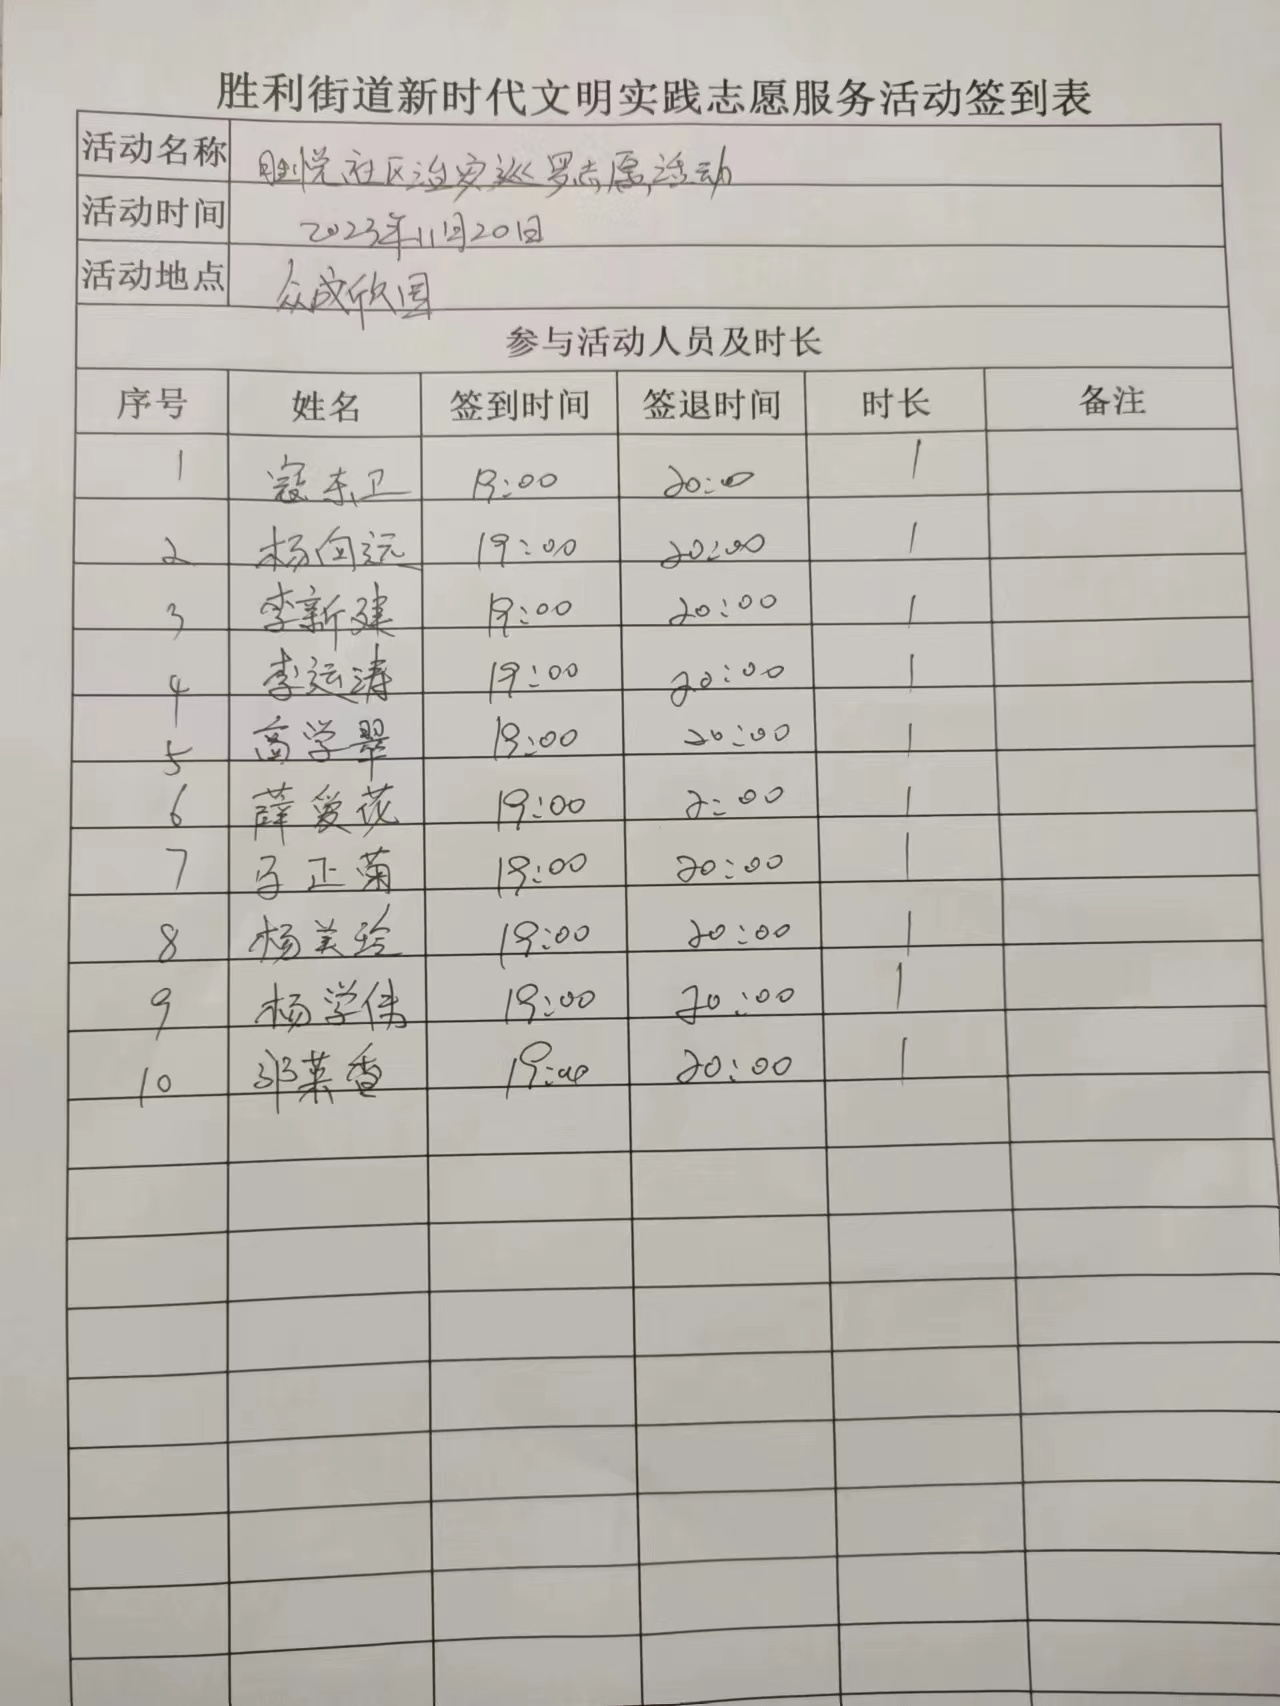 胜利街道新时代文明实践志愿服务活动签到表
活动名称 胜悦社区治安巡罗志愿活动
活动时间 2023年11月20日
活动地点 众成欣园
参与活动人员及时长
序号 姓名 签到时间 签退时间 时长 备注
1 寇东卫 19:00 20:00 1
2 杨向远 19:00 20:00 1
3 李新建 19:00 20:00 1
4 李运涛 19:00 20:00 1
5 高学翠 19:00 20:00 1
6 薛爱花 19:00 2:00 1
7 马正菊 19:00 20:00 1
8 杨美玲 19:00 20:00 1
9 杨学伟 19:00 20:00 1
10 19:00 20:00 1